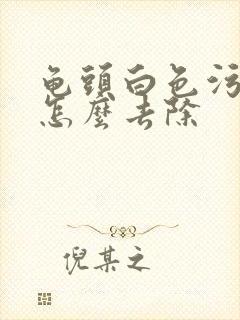 龟頭白色污
怎麼去除
倪某之